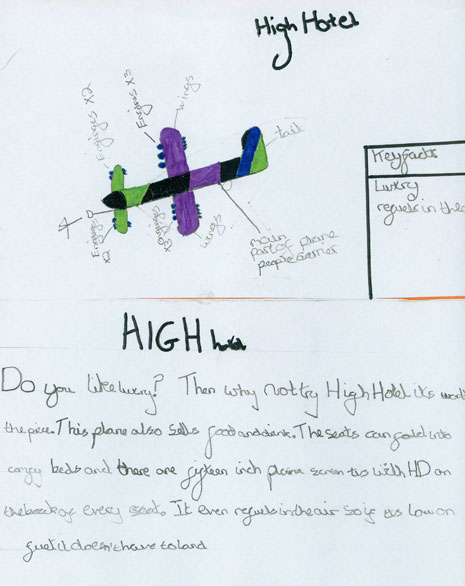 High Hotel
Engines x2
Engines x3
wings
tail
Key facts
Luxury
refuels in the a
x2 Engines
x3 Engines
wings
main
part of plane
people carrier
HIGH hotel
Do you like luxury? Then why not try High Hotel its worth
the price. This plane also sells food and drink. The seats can fold into
comfy beds and there are fifteen inch plasma screen tvs with HD on
the back of every seat. It even refuels in the air so if its low on
fuel it doesn't have to land